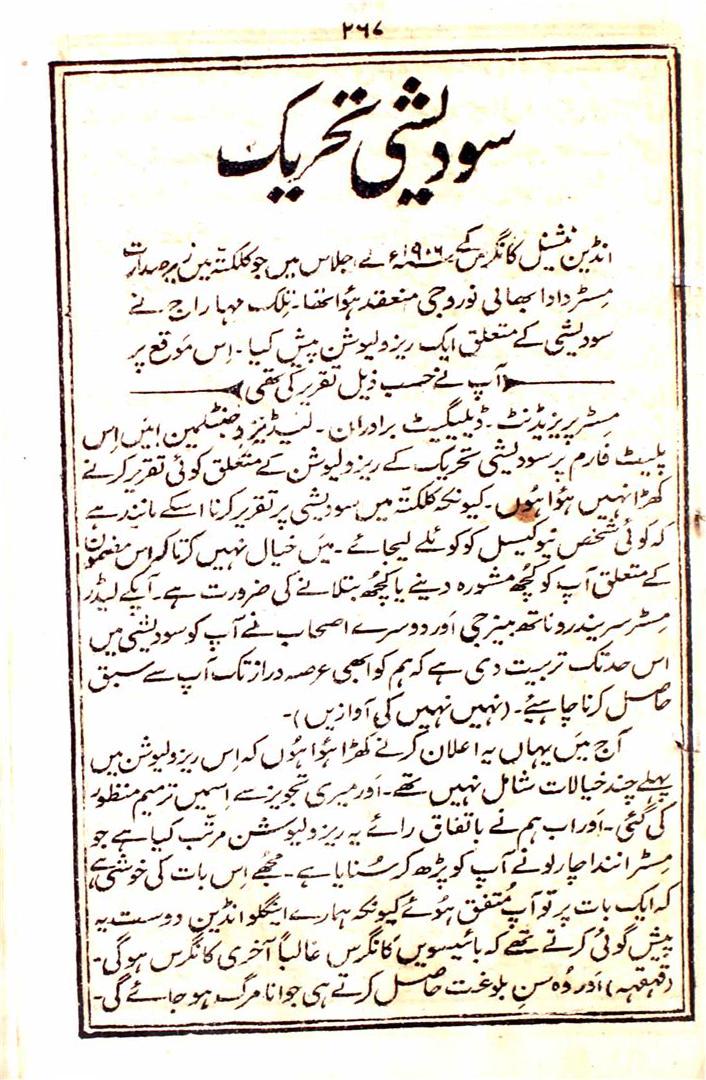 ۲۶۷
سودیشی تحریک
انڈین نیشنل کانگرس کے سنہ ۱۹۰۶ء کے اجلاس میں جو کلکتہ میں زیر صدارت
مسٹر دادا بھائی نوروجی منعقد ہؤا تھا۔ تِلک مہاراج نے
سودیشی کے متعلق ایک ریزولیوشن پیش کیا۔ اِس موقع پر
آپ نے حسب ذیل تقریر کی تھی
مسٹر پریزیڈنٹ۔ ڈیلیگیٹ برادران۔ لیڈیز و جنٹلمین! میَں اِس
پلیٹ فارم پر سودیشی تحریک کے ریزولیوشن کے متعلق کوئی تقریر کرنے
کھڑا نہیں ہؤا ہُوں۔ کیونکہ کلکتہ میں سودیشی پر تقریر کرنا اسکے مانند ہے
کہ کوئی شخص نیوکیسل کو کوئلے لیجائے۔ میَں خیال نہیں کرتا کہ اس مضمون
کے متعلق آپ کو کُچھ مشورہ دینے یا کُچھ بتلانے کی ضرورت ہے۔ آپکے لیڈر
مِسٹر سریندر و ناتھ بینرجی اَور دوسرے اصحاب نے آپ کو سودیشی میں
اس حد تک تربیت دی ہے کہ ہم کو ابھی عرصہ دراز تک آپ سے سبق
حاصل کرنا چاہیئے۔ (نہیں نہیں کی آوازیں)۔
آج میَں یہاں یہ اعلان کرنے کھڑا ہؤا ہُوں کہ اِس ریزولیوشن میں
پہلے چند خیالات شامل نہیں تھے۔ اَور میری تجویز سے اِسمیں ترمیم منظور
کی گئی۔ اَور اب ہم نے باتفاق رائے یہ ریزولیوشن مرتب کیا ہے جو
مِسٹر انندا چارلو نے آپ کو پڑھ کر سُنایا ہے۔ مُجھے اِس بات کی خوشی ہے
کہ ایک بات پر تو آپ مُتفق ہُوئے کیونکہ ہمارے اینگلو انڈین دوست یہ
پیش گوئی کرتے تھے کہ بائیسویں کانگرس غالباً آخری کانگرس ہوگی۔
(قہقہہ) اَور وُہ سنِ بلوغت حاصل کرتے ہی جوانا مرگ ہو جائے گی۔